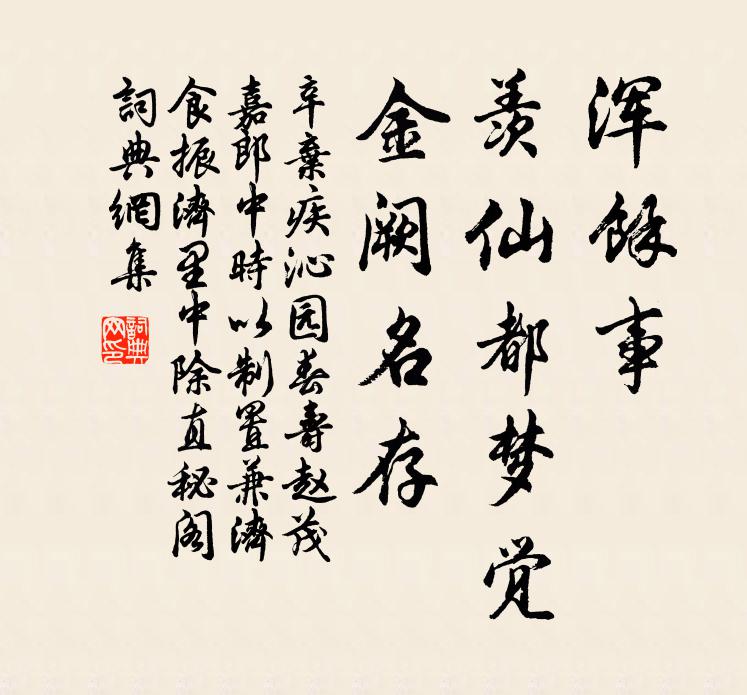 浑馀事
羡仙都梦觉
金阙名存
辛棄疾沁园春壽赵茂
嘉郎中時以制置兼濟
食振濟里中除直秘阁
詞典網集
詞典网印